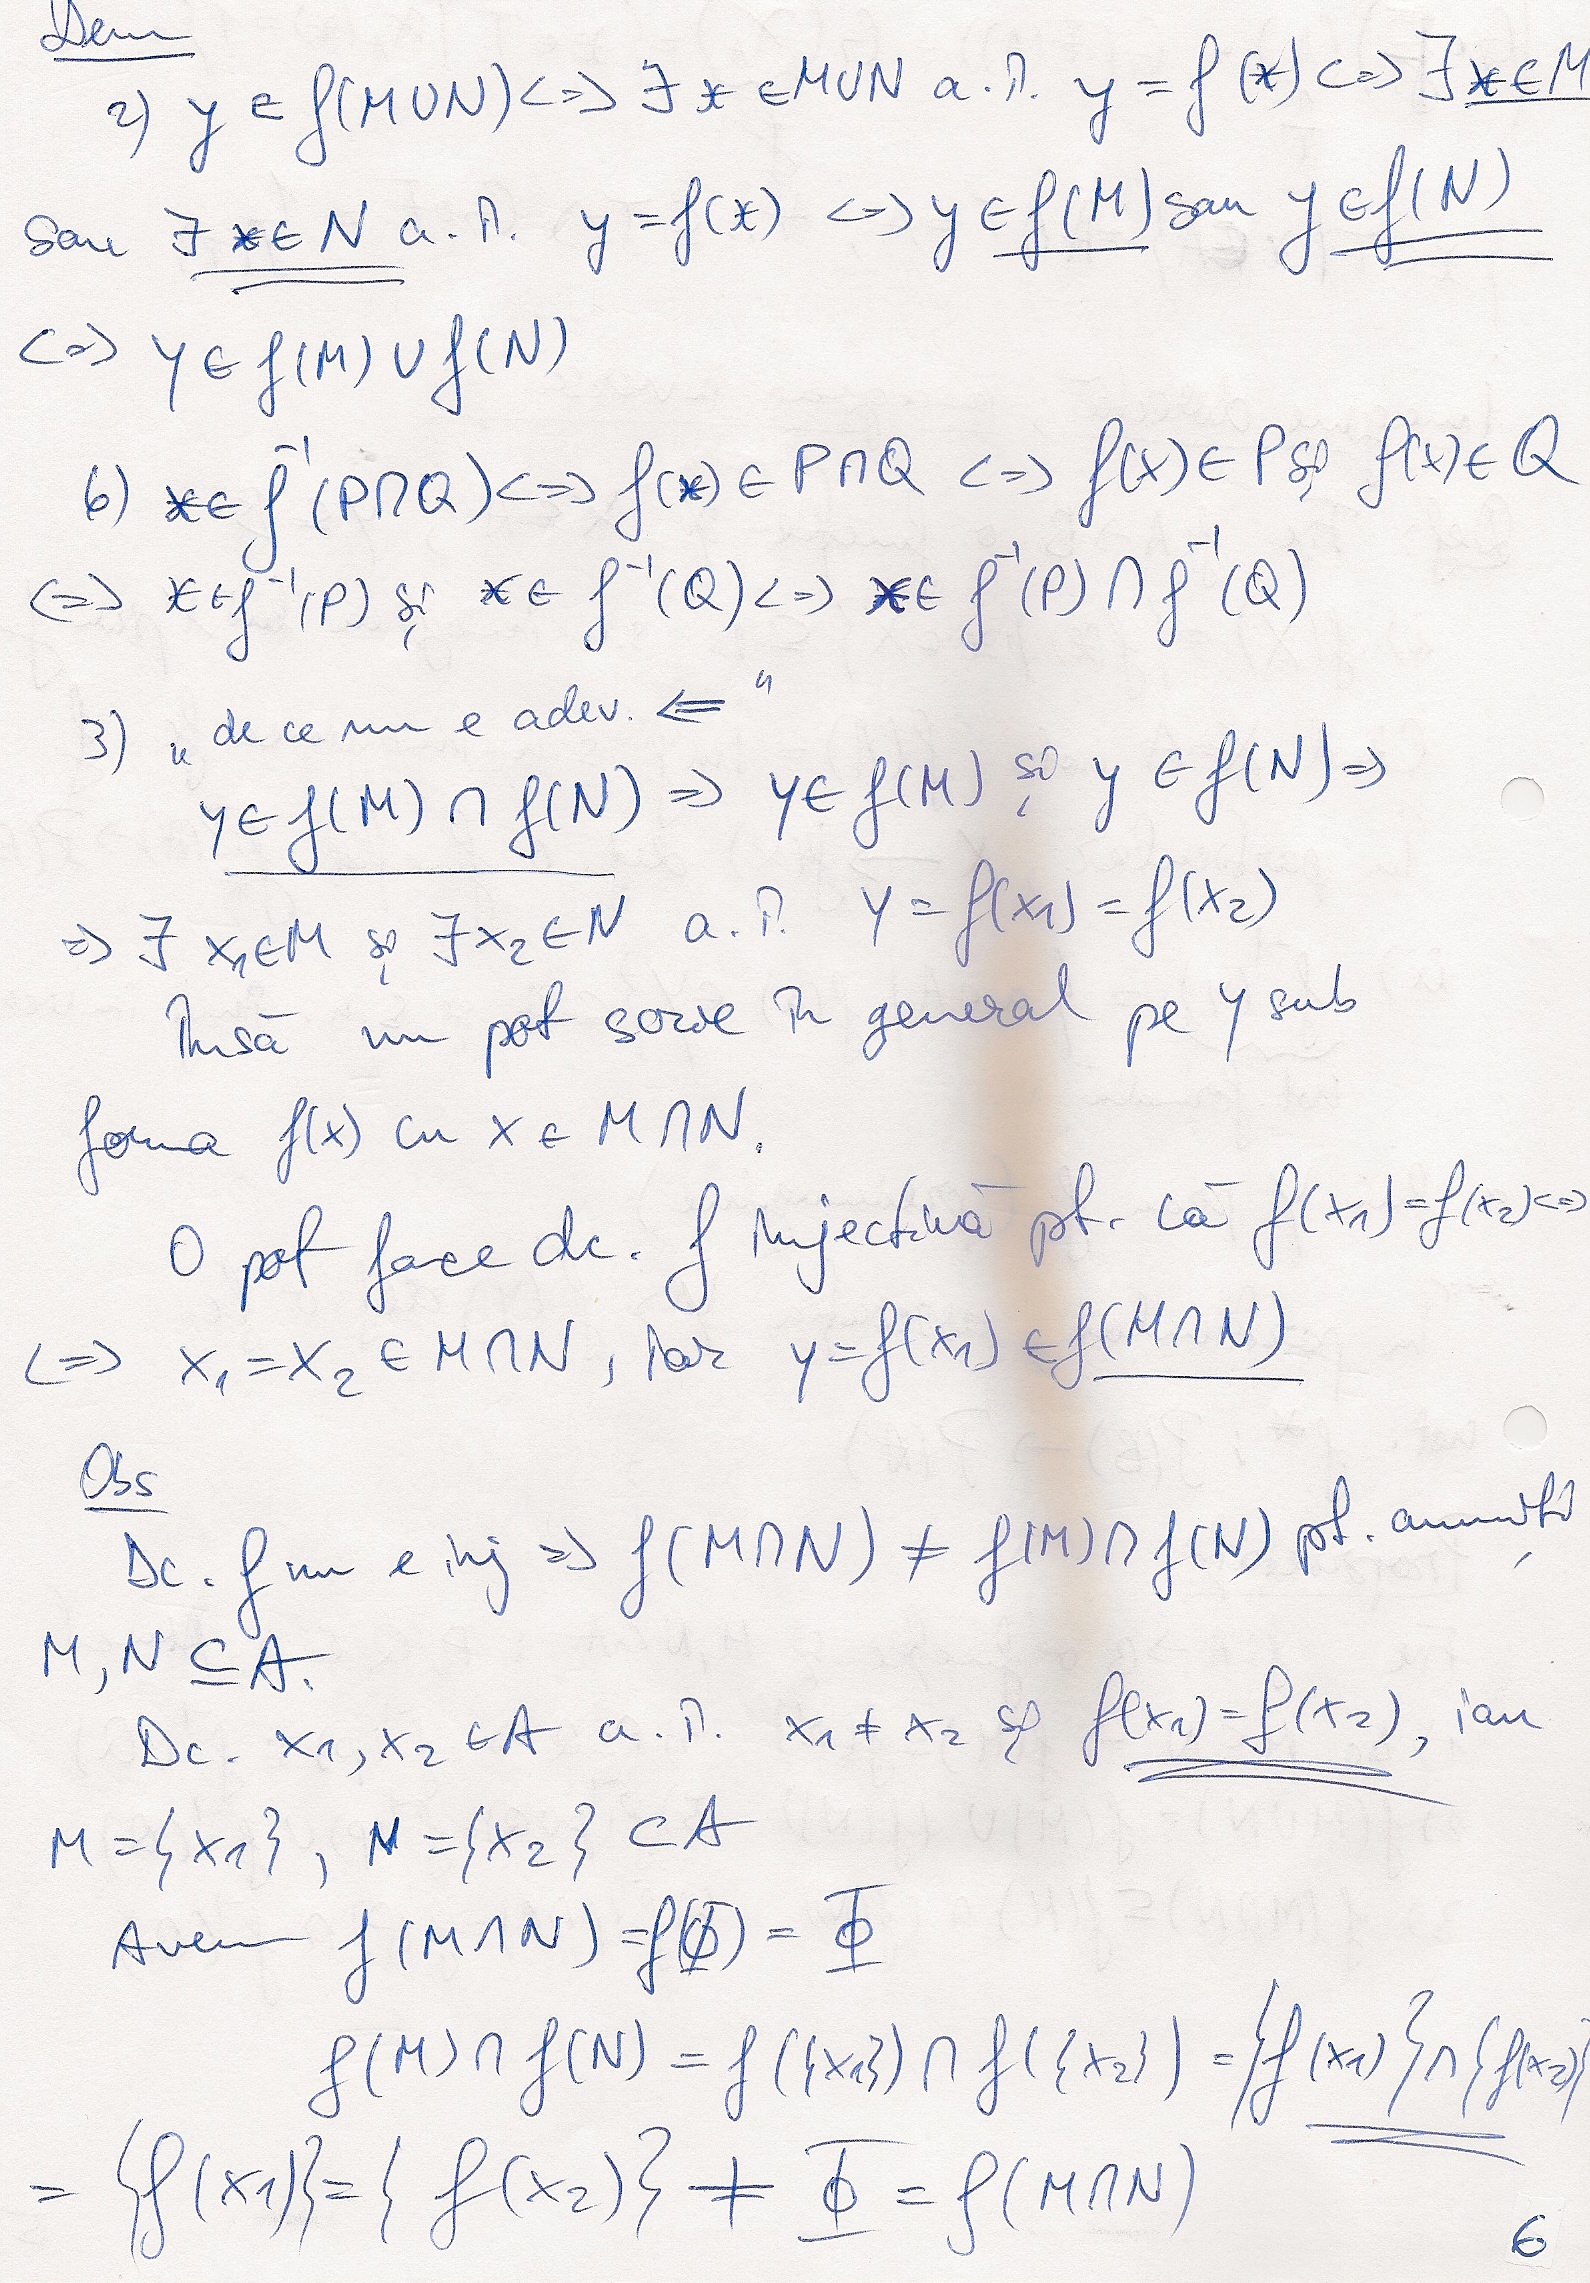 Dem
2) y ∈ f(M∪N) <=> ∃ x ∈ M∪N a.î. y = f(x) <=> ∃ x∈M
sau ∃ x∈N a.î. y = f(x) <=> y ∈ f(M) sau y ∈ f(N)
<=> y ∈ f(M) ∪ f(N)
6) x∈ f⁻¹(P∩Q) <=> f(x) ∈ P∩Q <=> f(x) ∈ P și f(x) ∈ Q
<=> x∈f⁻¹(P) și x∈ f⁻¹(Q) <=> x∈ f⁻¹(P) ∩ f⁻¹(Q)
3) „de ce nu e adev. <= "
y∈ f(M) ∩ f(N) => y∈ f(M) și y ∈ f(N) =>
=> ∃ x₁∈M și ∃ x₂∈N a.î. y = f(x₁) = f(x₂)
Însă nu pot scrie în general pe y sub
forma f(x) cu x ∈ M∩N.
O pot face dc. f injectivă pt. că f(x₁) = f(x₂) <=>
<=> x₁ = x₂ ∈ M∩N, iar y = f(x₁) ∈ f(M∩N)
Obs
Dc. f nu e inj => f(M∩N) ≠ f(M) ∩ f(N) pt. anumiți
M, N ⊆ A.
Dc. x₁, x₂ ∈A a.î. x₁ ≠ x₂ și f(x₁) = f(x₂), iar
M = {x₁}, N = {x₂} ⊂ A
Avem f(M∩N) = f(Φ) = Φ
f(M) ∩ f(N) = f({x₁}) ∩ f({x₂}) = {f(x₁)} ∩ {f(x₂)}
= {f(x₁)} = {f(x₂)} ≠ Φ = f(M∩N)
6